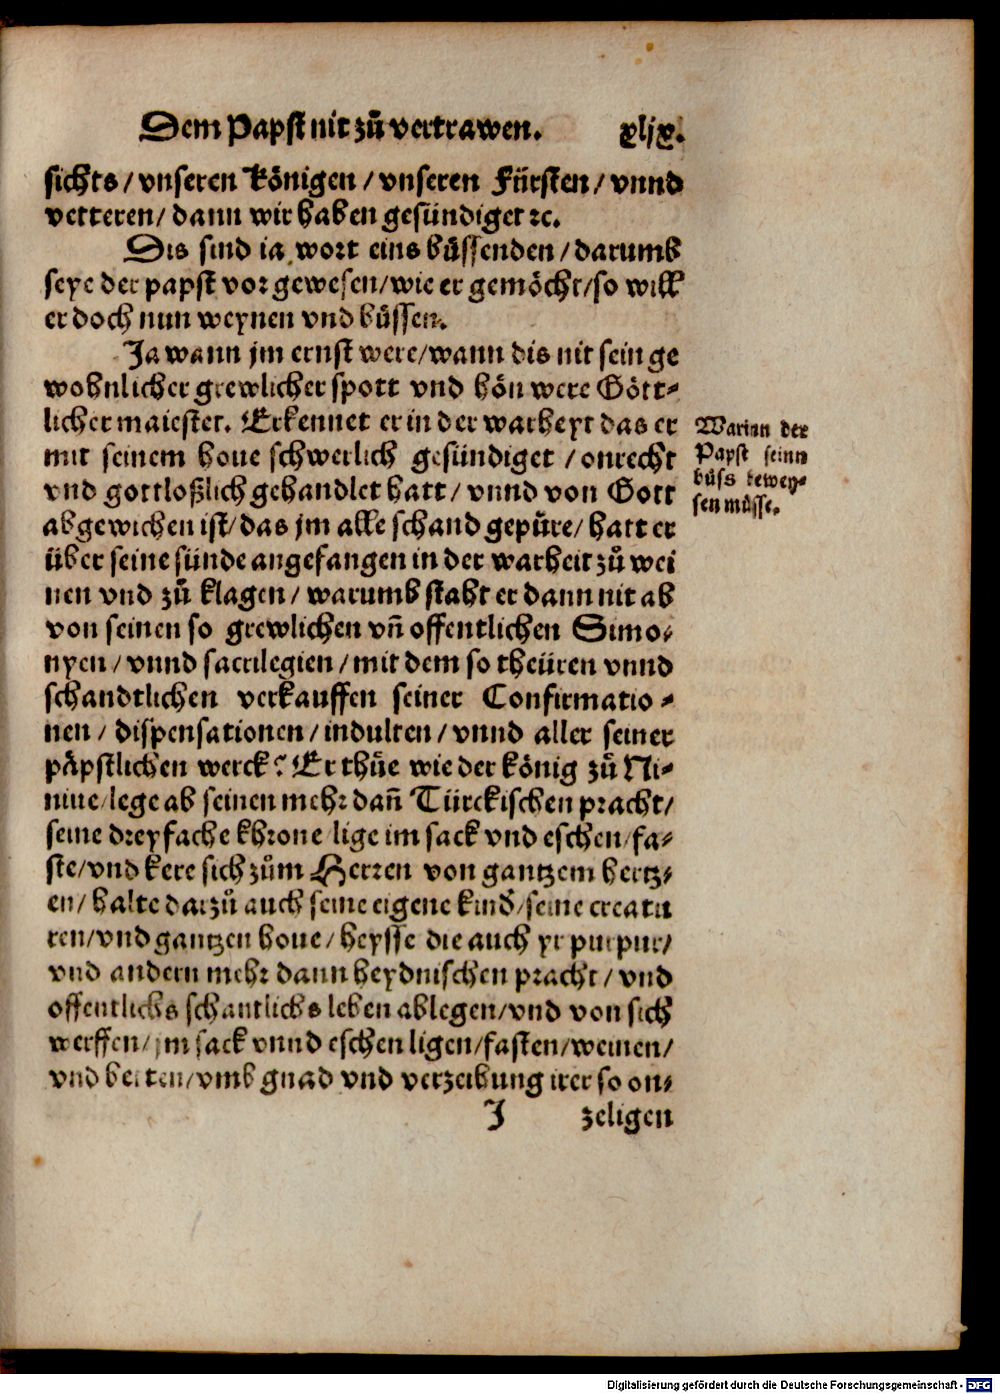 Dem Papst nit zů vertrawen. xljx.
sichts/vnseren Königen/vnseren Fürsten/vnnd
vetteren/dann wir haben gesündiget ꝛc.
Dis sind ia wort eins bůssenden/darumb
seye der papst vor gewesen/wie er gemöcht/so will
er doch nun weynen vnd bůssen.
Ja wann jm ernst were/wann dis nit sein ge
wohnlicher grewlicher spott vnd hön were Gött⸗
licher maiestet. Erkennet er in der warheyt das er
mit seinem houe schwerlich gesündiget/onrecht
vnd gottloßlich gehandlet hatt/vnnd von Gott
abgewichen ist/das jm alle schand gepüre/hatt er
über seine sünde angefangen in der warheit zů wei
nen vnd zů klagen/warumb staht er dann nit ab
von seinen so grewlichen vn̄ offentlichen Simo⸗
nyen/vnnd sacrilegien/mit dem so theüren vnnd
schandtlichen verkauffen seiner Confirmatio⸗
nen/dispensationen/indulten/vnnd aller seiner
päpstlichen werck? Er thüe wie der könig zů Ni⸗
niue/lege ab seinen mehr dan̄ Türckischen pracht/
seine dreyfache khrone lige im sack vnd eschen/fa⸗
ste/vnd kere sich zům Herren von gantzem hertz⸗
en/halte darzů auch seine eigene kind/seine creatu
ren/vnd gantzen houe/heysse die auch yr purpur/
vnd andern mehr dann heydnischen pracht/vnd
offentlichs schantlichs leben ablegen/vnd von sich
werffen/jm sack vnnd eschen ligen/fasten/weinen/
vnd betten/vmb gnad vnd verzeihung irer so on⸗
J zeligen
Warinn der
Papst seinn
bůss bewey⸗
sen můsse.
Digitalisierung gefördert durch die Deutsche Forschungsgemeinschaft - DFG